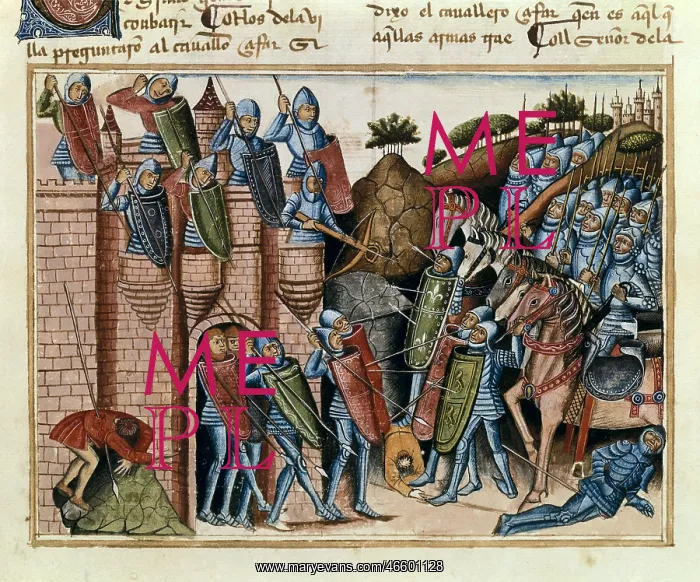 conbatir Collos dela vi
lla preguntaro al cauallo Cafar Si
dixo el cauallero Cafar qen es aqlq
aqllas armas trae Coll Senor dela
ME
PL
ME
PL
www.maryevans.com/46601128